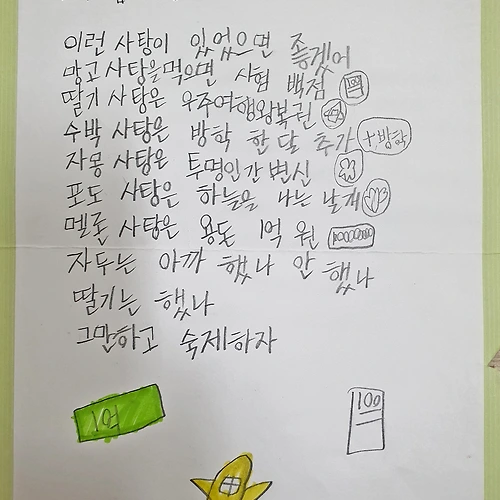 이런 사탕이 있었으면 좋겠어
망고 사탕을 먹으면 시험 백점 100
딸기 사탕은 우주여행왕복권
수박 사탕은 방학 한 달 추가 +방학
자몽 사탕은 투명인간변신
포도 사탕은 하늘을 나는 날개
멜론 사탕은 용돈 1억 원
자두는 아까 했나 안 했나
딸기는 했나
그만하고 숙제하자
1억
100